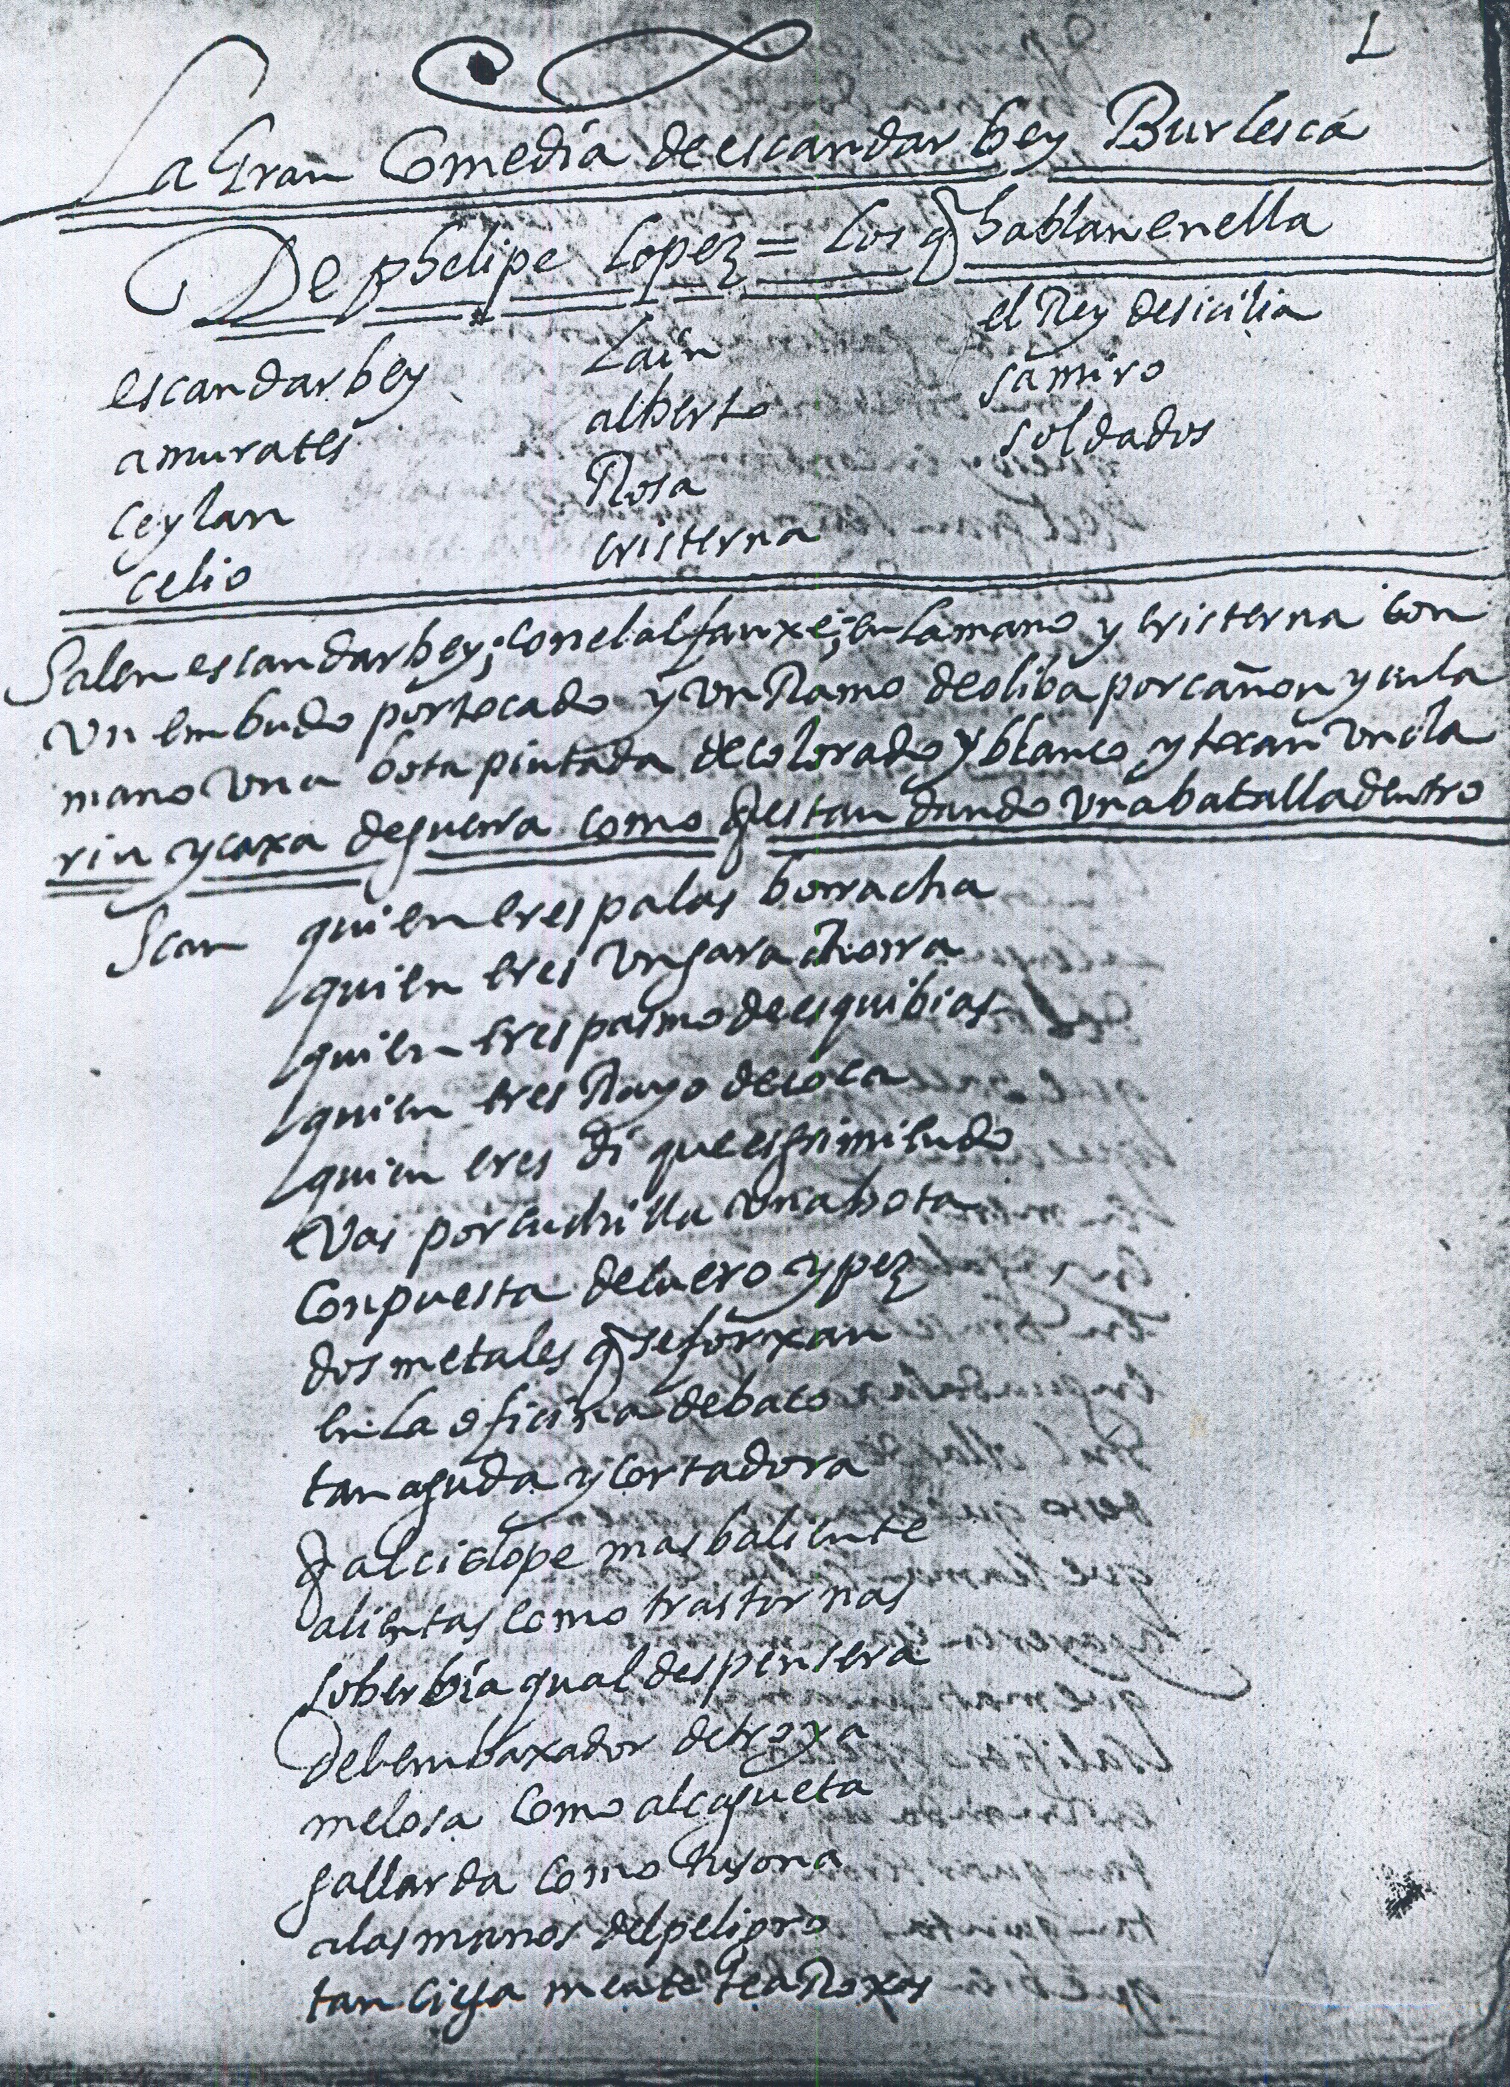 L
La Gran Comedia de escandar bey Burlesca
De phelipe Lopez = Los q hablan en ella
escandar bey
amurates
ceylan
celio
Lain
alberto
Rosa
cristerna
el Rey de sicilia
ramiro
soldados
Salen escandar bey; con el alfanxe; en la mano y cristerna con
un embudo por tocado y un Ramo de oliba por cañon y en la
mano una bota pintada de colorado y blanco y tocan un cla
rin y caxa de guerra como q estan dando una batalla dentro
Scan quien eres palas borracha
quien eres ungara chorra
quien eres pasmo de esquibias
quien eres Rayo de coca
quien eres di que esgrimiendo
vas por cuchilla una bota
conpuesta de cuero y pez
dos metales q se forxan
en la oficina de baco
tan aguda y cortadora
q al ciclope mas baliente
alientas como trastornas
soberbia qual despensera
del embaxador de troya
melosa como alcagueta
gallarda como tusona
a las manos del peligro
tan ciega mente te aRoxas